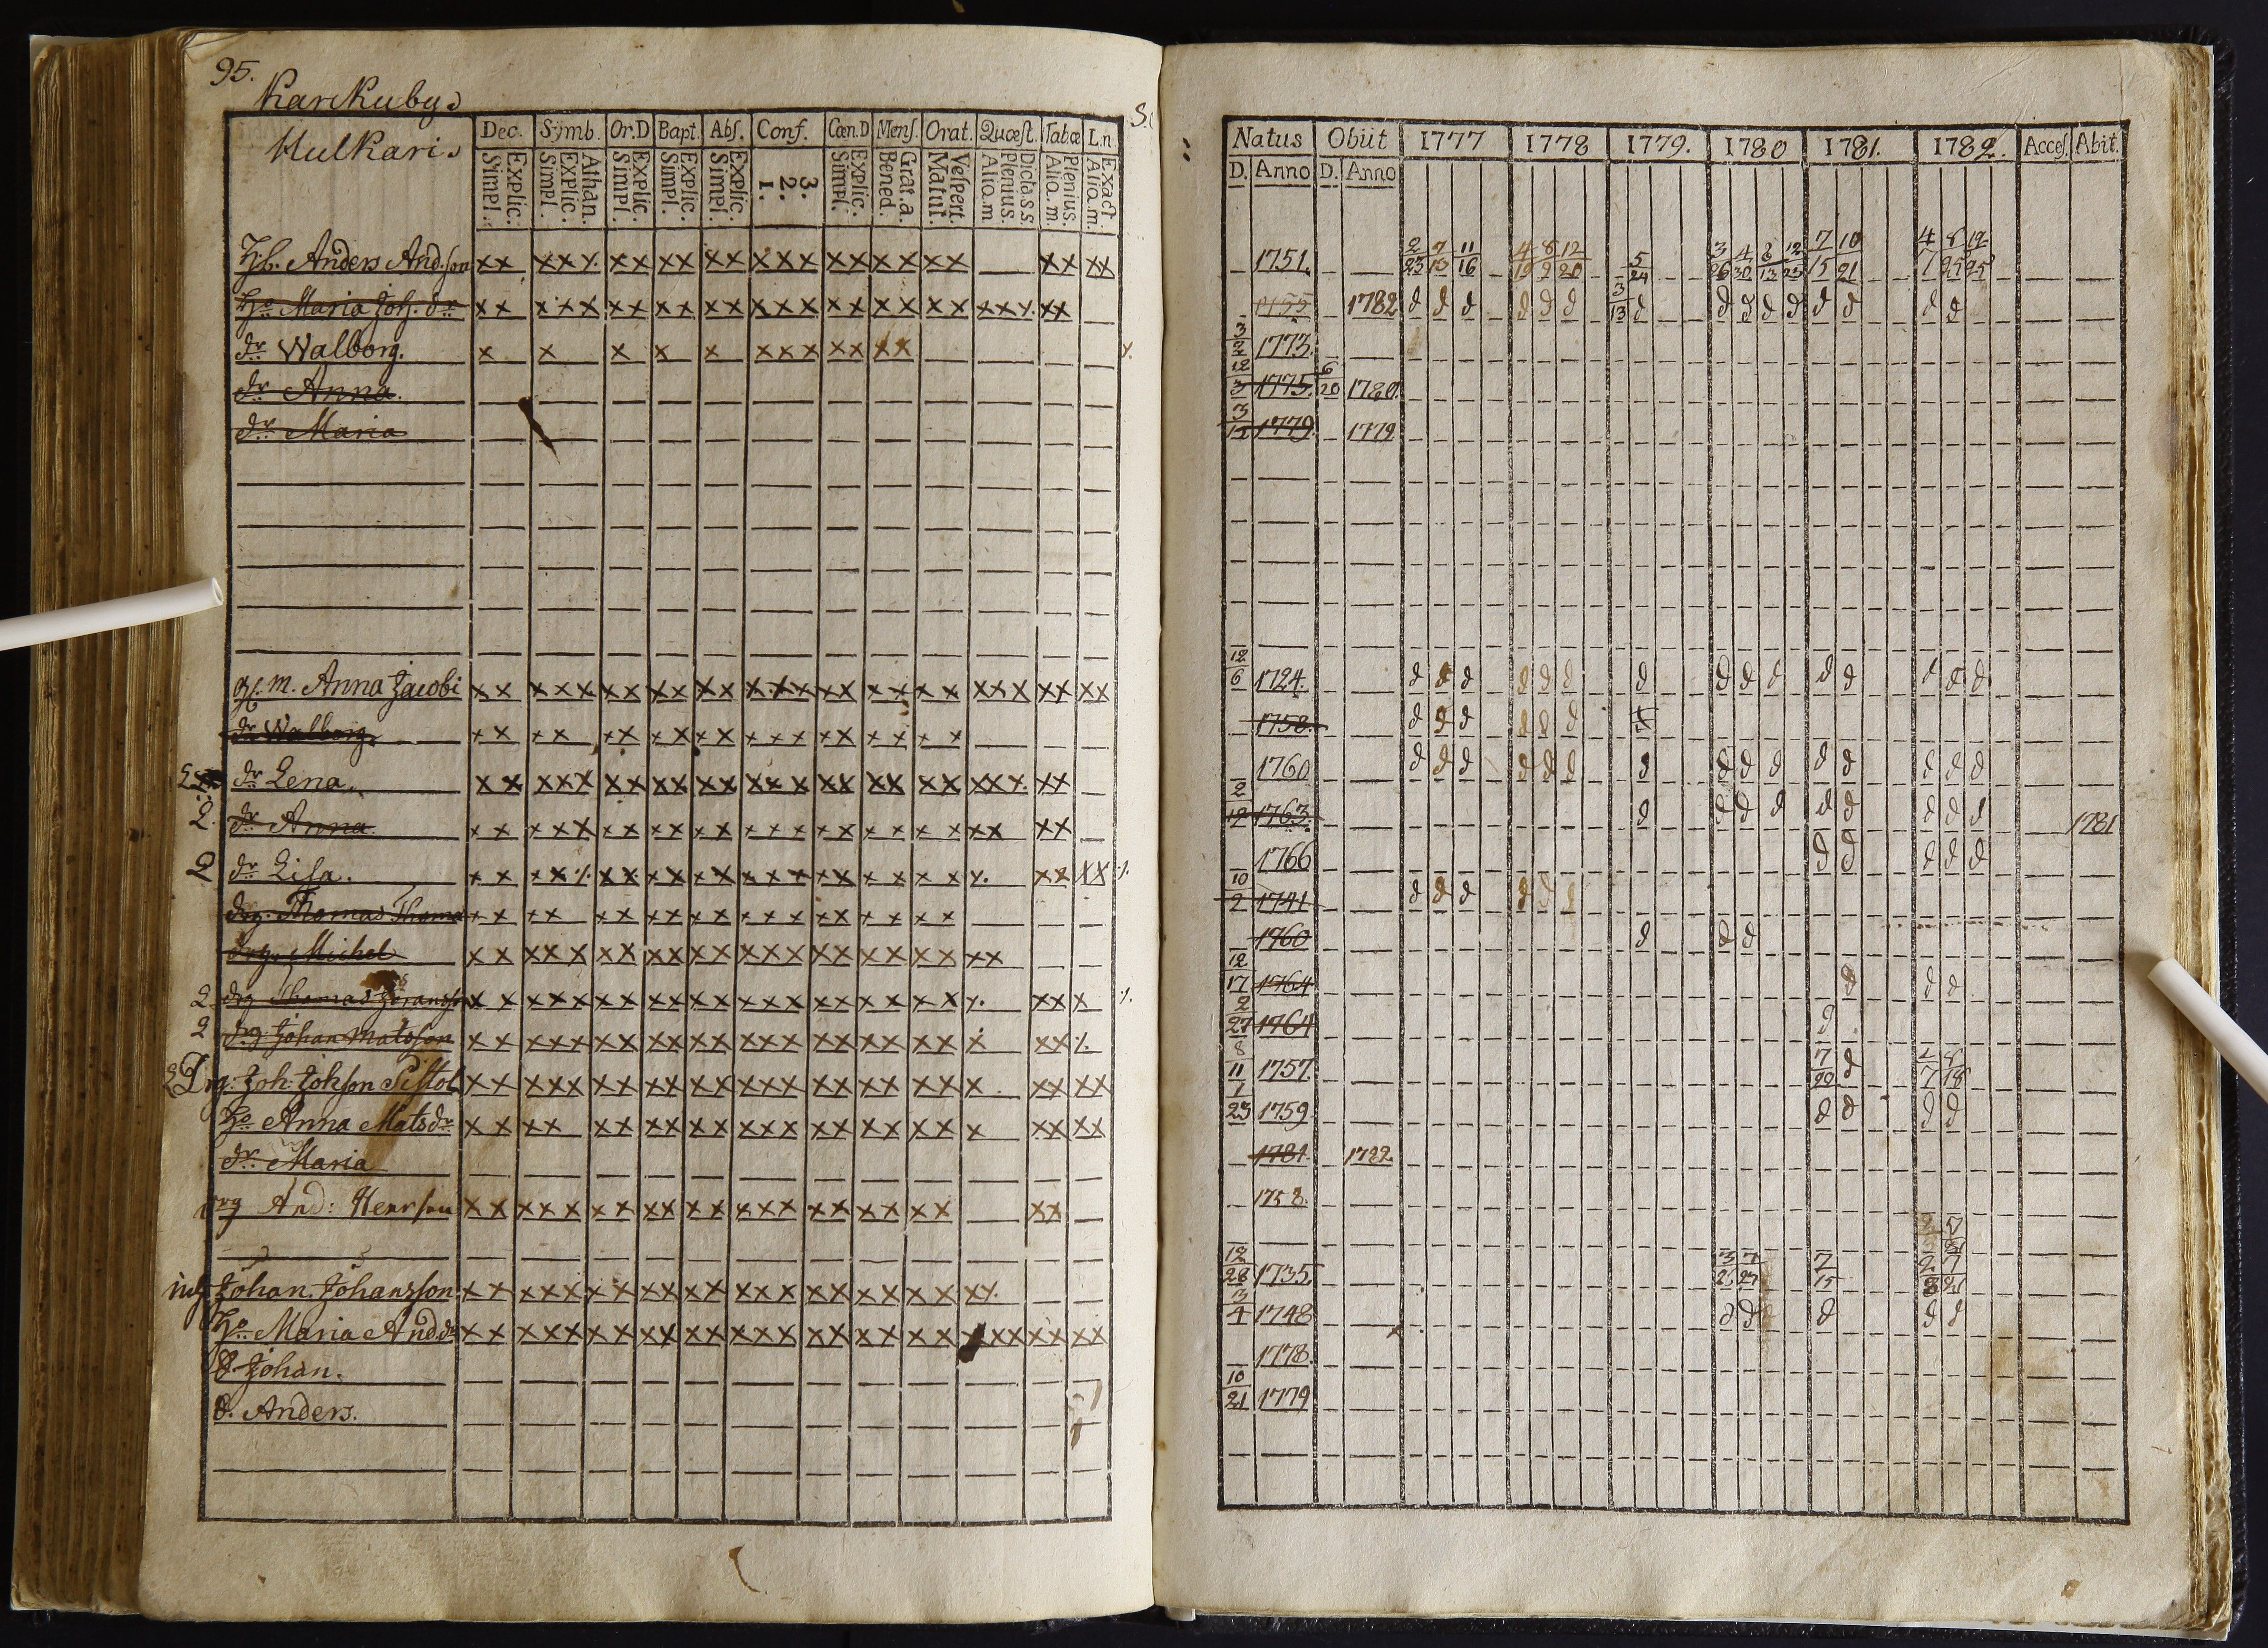 95.
Karkuby
Hulkari
Dec. Symb. Or.D Bapt. Abſ. Conf. Cœn.D Menſ. Orat. Quæſt. Tabæ L.n.
Simpl. Explic. Simpl. Explic. Athan. Simpl. Explic. Simpl. Explic. Simpl. Explic. 1. 2. 3. Simpl. Explic. Bened. Grat.a. Matut. Veſpert. Aliq.m Plenius. Dicta.s.s. Aliq.m. Plenius. Aliq.m. Exact.
Anders And.son xx xxx xx xx xx xxx xx xx xx xx xx
Maria Joh. dr xx xxx xx xx xx xxx xx xx xx xxx xx
dr Walborg. x x x x x xxx xx xx
dr Anna.
dr Maria
m. Anna Jacobi xx xxx xx xx xx xxx xx xx xx xxx xx xx
dr Walborg. xx xx xx xx xx xxx xx xx xx
dr Lena. xx xxx xx xx xx xxx xx xx xx xxx xx
2. dr Anna xx xxx xx xx xx xxx xx xx xx xx xx
2 dr Lisa. xx xx xx xx xx xxx xx xx xx xx xx
drg. Thomas Thoma xx xx xx xx xx xxx xx xx xx
drg. Michel xx xxx xx xx xx xxx xx xx xx xx
2 drg Thomas xx xxx xx xx xx xxx xx xx xx xx x
2 drg. Johan Matsson xx xxx xx xx xx xxx xx xx xx x xx
2 Drg. Joh. Johson Pistol xx xxx xx xx xx xxx xx xx xx x xx xx
Anna Matsdr xx xx xx xx xx xxx xx xx xx x xx xx
dr Maria
drg And: Henrson xx xxx xx xx xx xxx xx xx xx xx
inh Johan Johansson xx xxx xx xx xx xxx xx xx xx
Maria And.dr xx xxx xx xx xx xxx xx xx xx xxx xx xx
Johan.
Anders.
Natus Obiit 1777 1778 1779. 1780 1781. 1782. Acceſ. Abit.
D. Anno D. Anno
1751. 2/23 7/13 11/16 4/19 8/9 12/20 5/24 3/26 4/30 8/13 12/25 7/15 10/21
1782 d d d d d d 3/13 d d d d d d d d d
3/2 1773.
12/3 1775. 6/20 1780.
3/13 1779. 1779
12/6 1724. d d d d d d d d d d d d d d d
1758. d d d d d d
1760 d d d d d d d d d d d d d d d
2/12 1763. d d d d d d d d d 1781
1766 d d d d d
10/2 1741 d d d d d d
1760 d d d
12/17 1764 d d d
2/27 1764 d
8/11 1757. 7/20 d
1/23 1759. d d d d
1781 1782.
1758.
12/28 1735. 7/15
3/4 1748 d d d d d
1778.
10/21 1779